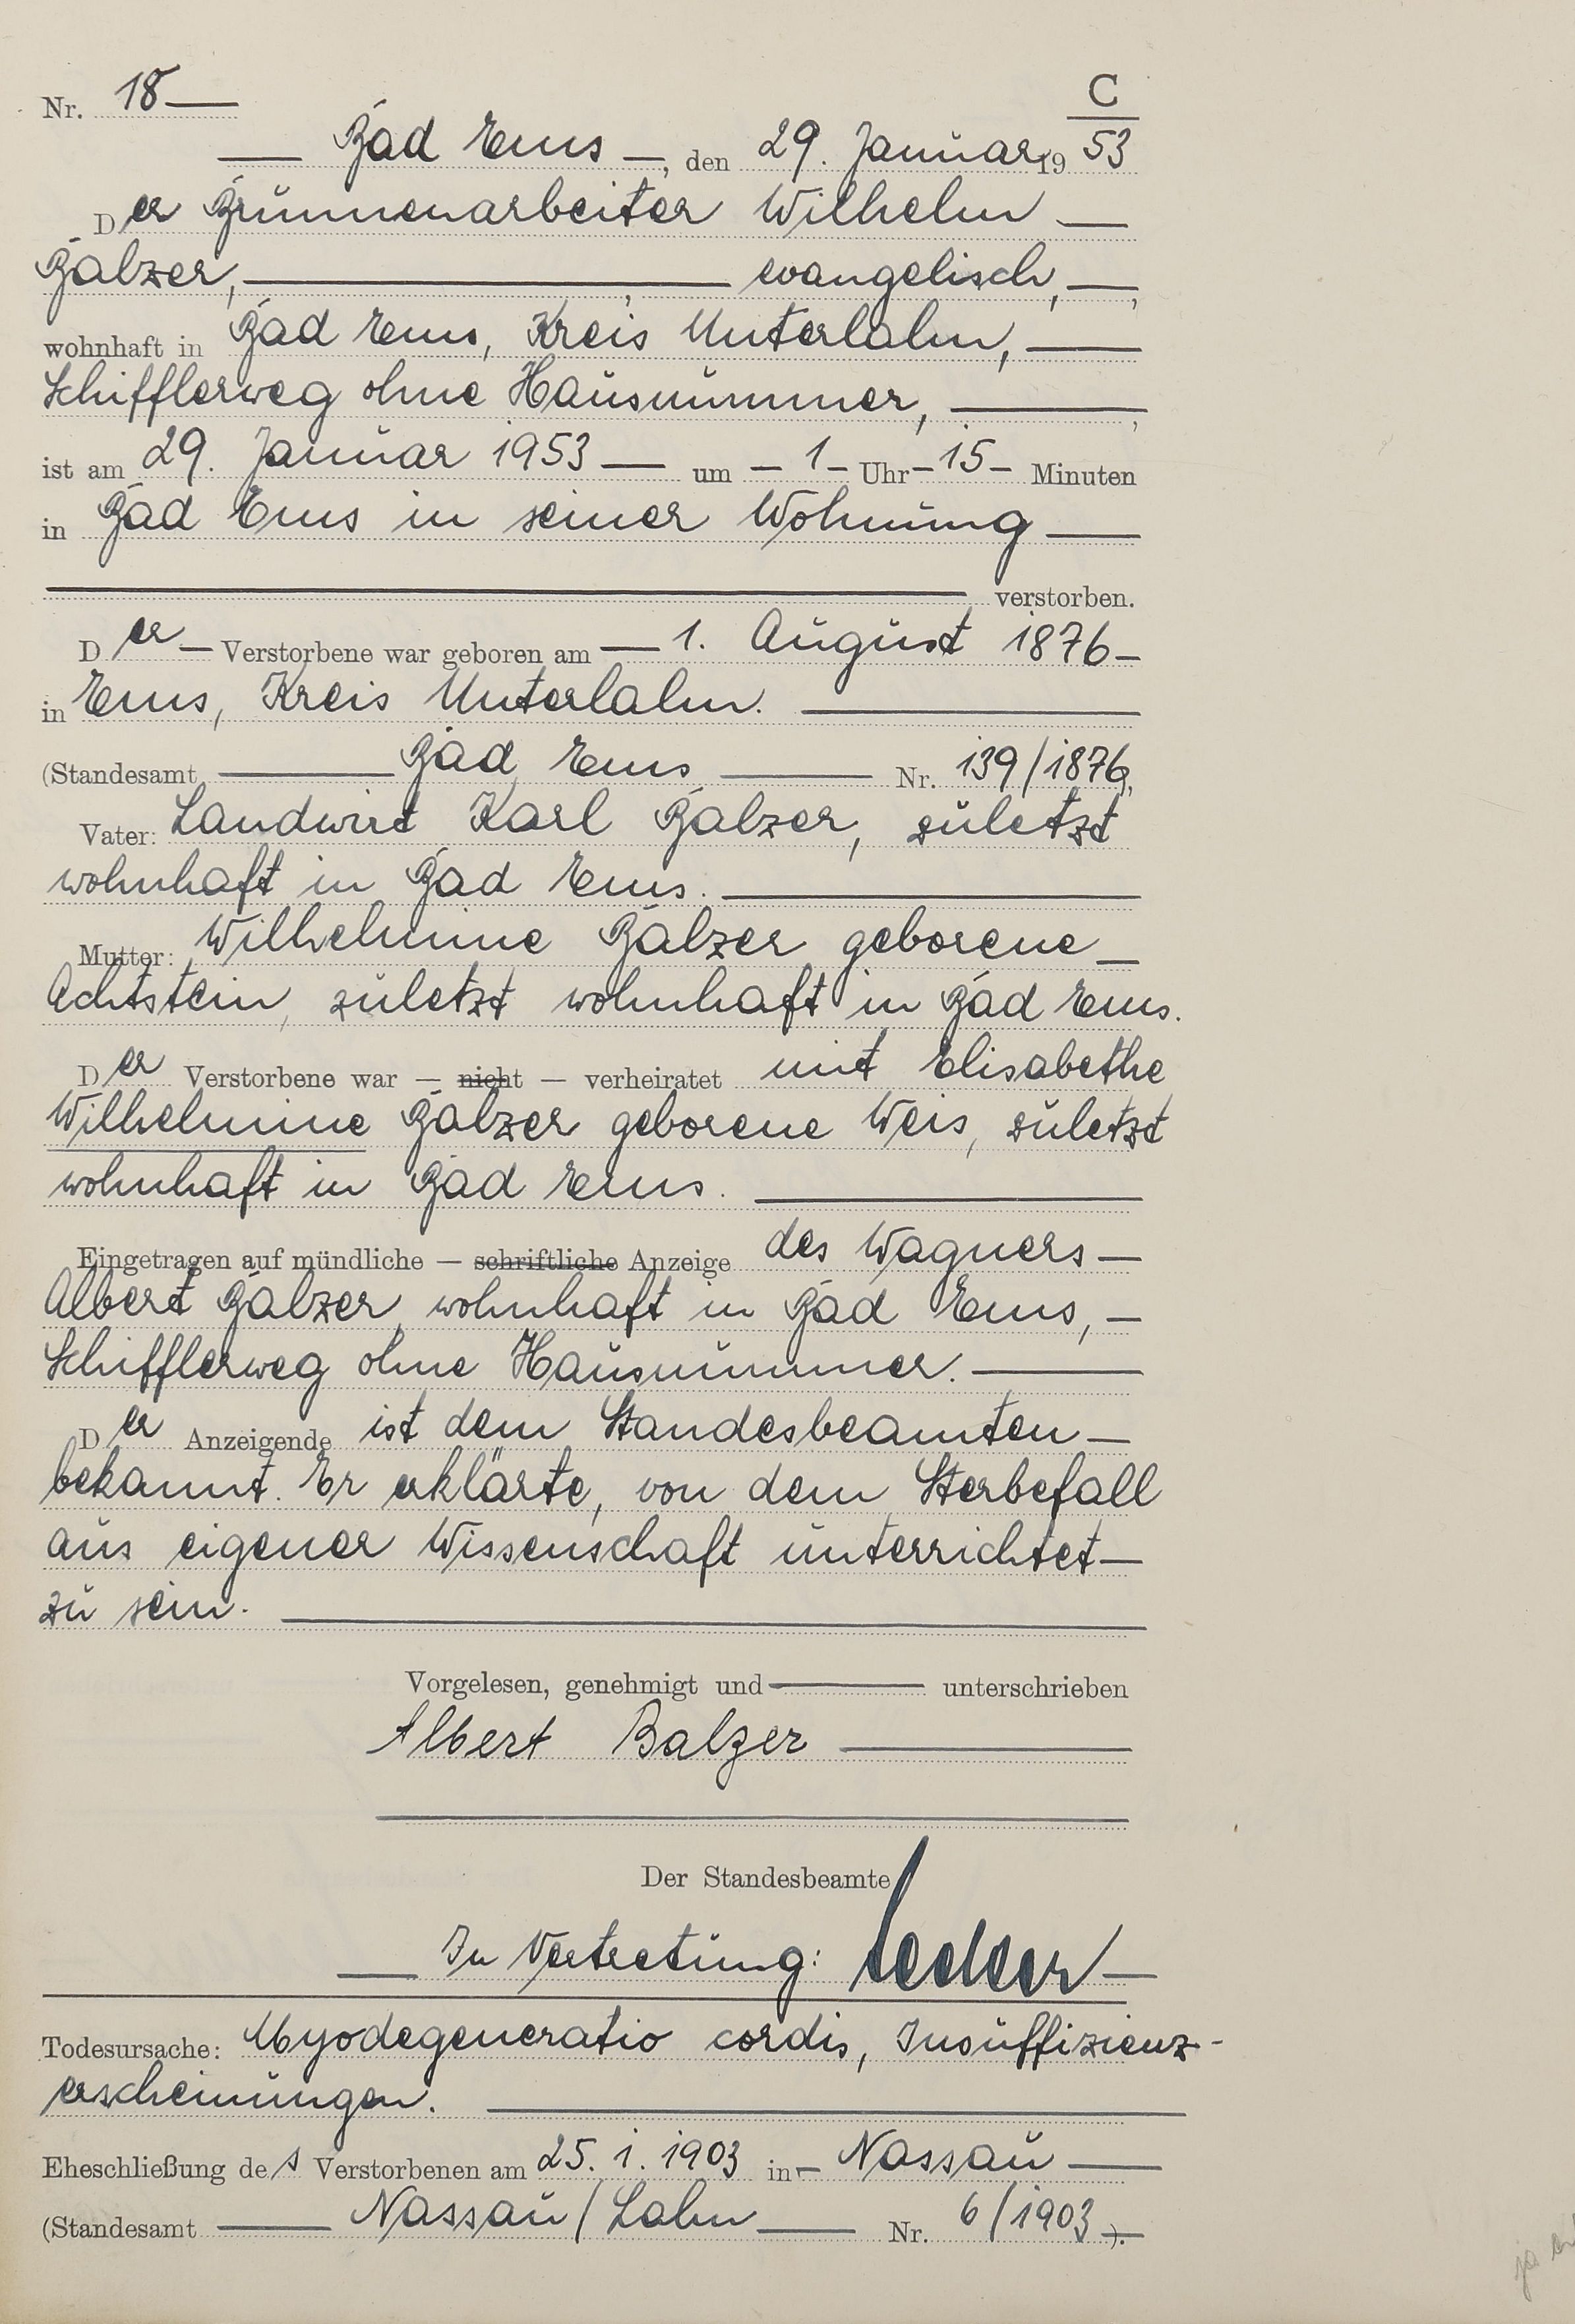 C
Nr. 18
Bad Ems, den 29. Januar 1953
Der Brunnenarbeiter Wilhelm
Balzer, evangelisch,
wohnhaft in Bad Ems, Kreis Unterlahn,
Schifflerweg ohne Hausnummer,
ist am 29. Januar 1953 um 1 Uhr 15 Minuten
in Bad Ems in seiner Wohnung
verstorben.
Der Verstorbene war geboren am 1. August 1876
in Ems, Kreis Unterlahn.
(Standesamt Bad Ems Nr. 139/1876)
Vater: Landwirt Karl Balzer, zuletzt
wohnhaft in Bad Ems.
Mutter: Wilhelmine Balzer geborene
Achtstein, zuletzt wohnhaft in Bad Ems.
Der Verstorbene war — nicht — verheiratet mit Elisabethe
Wilhelmine Balzer geborene Weis, zuletzt
wohnhaft in Bad Ems.
Eingetragen auf mündliche — schriftliche Anzeige des Wagners
Albert Balzer, wohnhaft in Bad Ems,
Schifflerweg ohne Hausnummer.
Der Anzeigende ist dem Standesbeamten
bekannt. Er erklärte, von dem Sterbefall
aus eigener Wissenschaft unterrichtet
zu sein.
Vorgelesen, genehmigt und unterschrieben
Albert Balzer
Der Standesbeamte
In Vertretung:
Todesursache: Myodegeneratio cordis, Insuffizienz-
erscheinungen.
Eheschließung des Verstorbenen am 25. 1. 1903 in Nassau
(Standesamt Nassau/Lahn Nr. 6/1903).